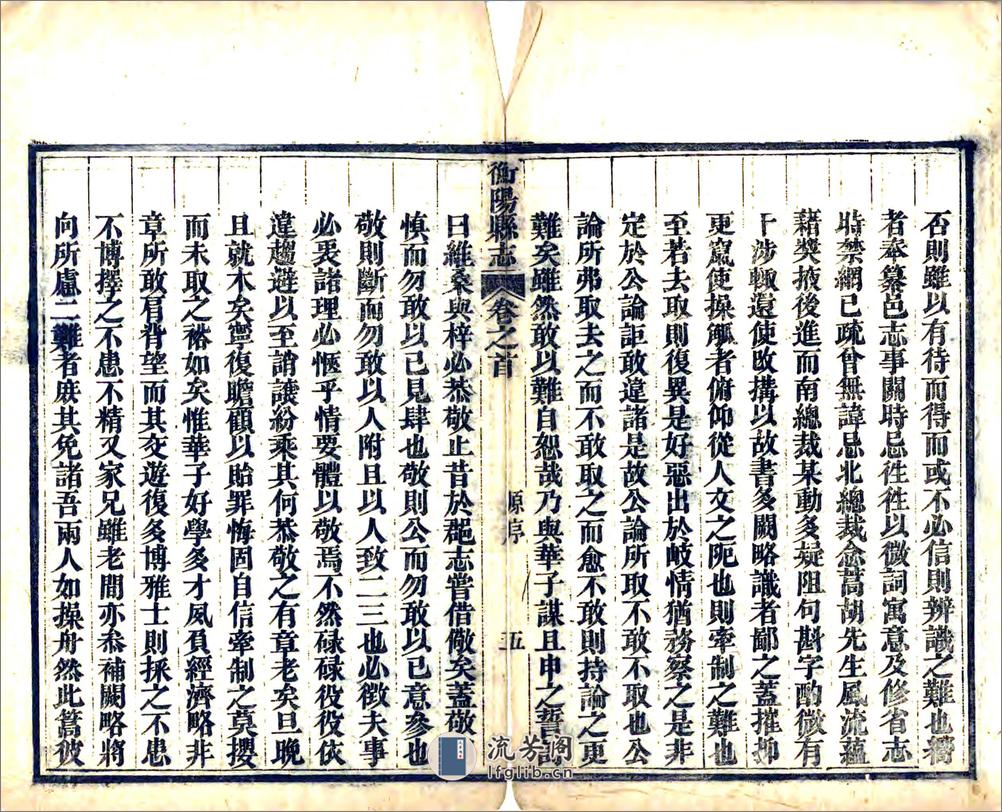 否則雖以有待而得而或不必信則辨識之難也嚮
者奉纂邑志事關時忌往往以微詞寓意及修省志
時禁網已疏曾無諱忌北總裁念蒿胡先生風流蘊
藉獎掖後進而南總裁某動多疑阻句斟字酌微有
干涉輙還使改搆以故書多闕略識者鄙之蓋摧抑
更竄使操觚者俯仰從人文之阨也則牽制之難也
至若去取則復異是好惡出於岐情猶務察之是非
定於公論詎敢違諸是故公論所取不敢不取也公
論所弗取去之而不敢取之而愈不敢則持論之更
難矣雖然敢以難自恕哉乃與華子謀且申之誓詞
衡陽縣志
卷之首
原序
五
曰維桑與梓必恭敬止昔於郡志嘗借儆矣蓋敬
慎而勿敢以己見肆也敬則公而勿敢以己意參也
敬則斷而勿敢以人附且以人致二三也必徵夫事
必衷諸理必愜乎情要體以敬焉不然碌碌役役依
違趨避以至誚讓紛乘其何恭敬之有章老矣旦晚
且就木矣寧復瞻顧以貽罪悔固自信牽制之莫攖
而未取之裕如矣惟華子好學多才夙負經濟略非
章所敢肩背望而其交遊復多博雅士則採之不患
不博擇之不患不精又家兄雖老間亦恭補闕略將
向所慮二難者庶其免諸吾兩人如操舟然此篙彼
流芳閣
lfglib.cn